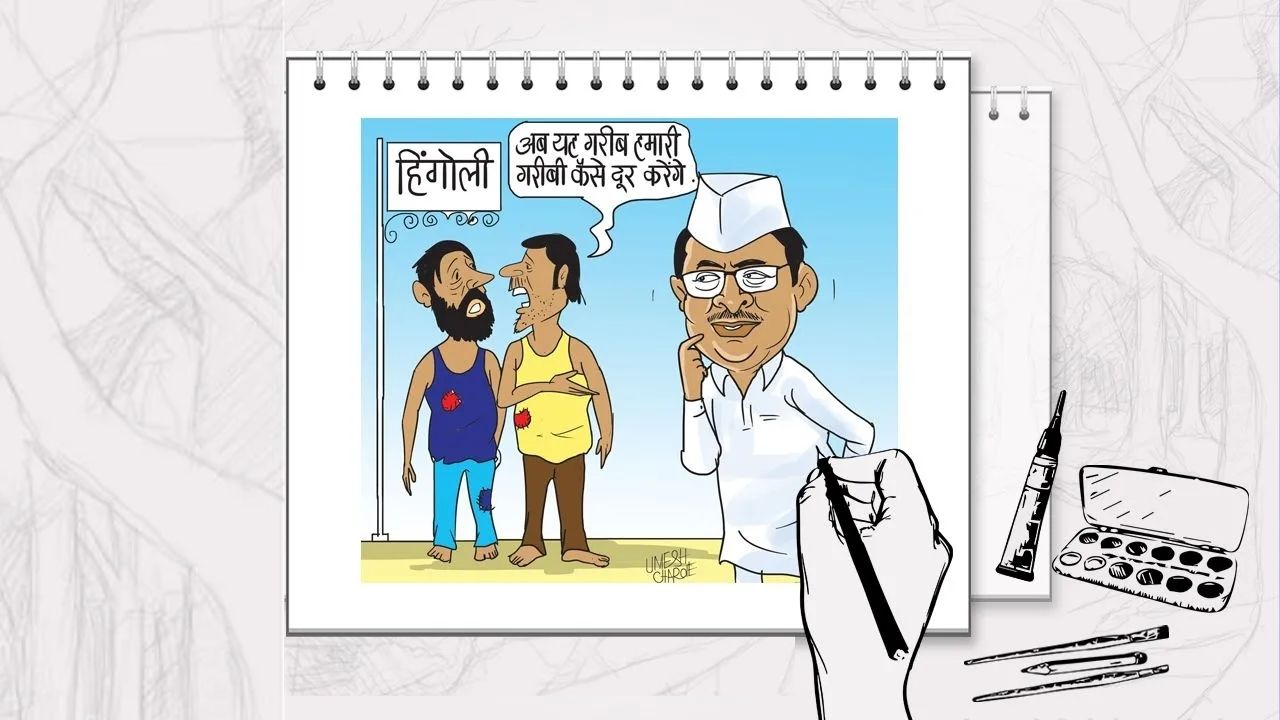 हिंगोली
अब यह गरीब हमारी
गरीबी कैसे दूर करेंगे.
UMESH
CHARDE